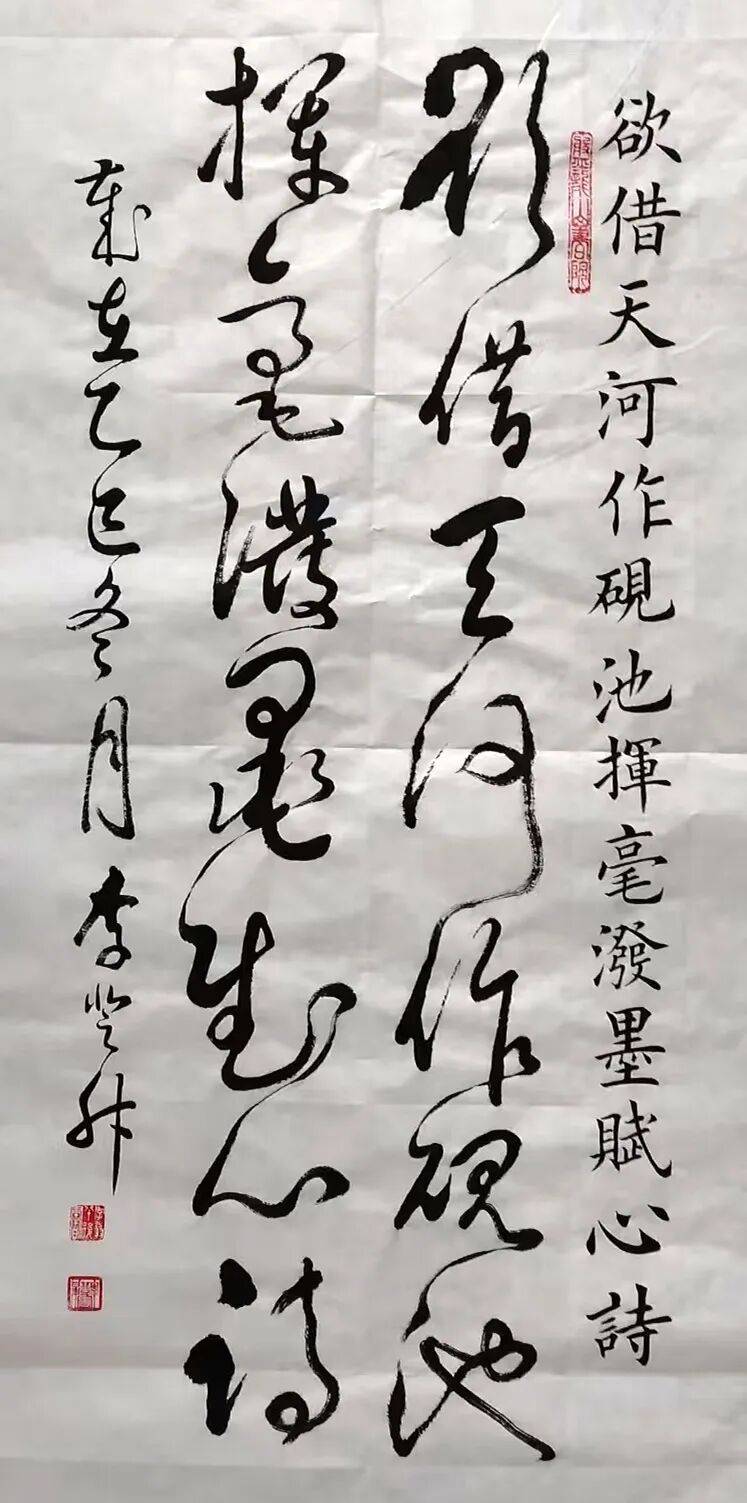 欲借天河作硯池揮毫潑墨賦心詩
欲借天河作硯池
揮毫潑墨賦心詩
歲在乙巳冬月李